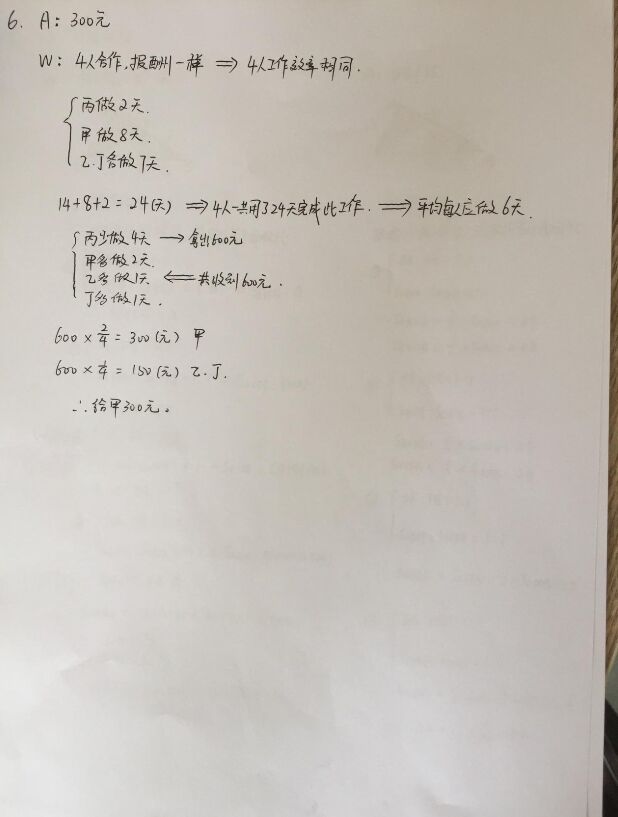 6. A: 300元
W: 4人合作,报酬一样 ⇒ 4人工作效率相同.
丙做2天.
甲做8天.
乙.丁各做7天.
14+8+2=24(天) ⇒ 4人一共用了24天完成此工作. ⇒ 平均每人应做6天.
丙少做4天 → 拿出600元
甲多做2天.
乙多做1天 ⇐ 共收到600元.
丁多做1天.
600×2/4=300(元) 甲
600×1/4=150(元) 乙.丁.
∴给甲300元。